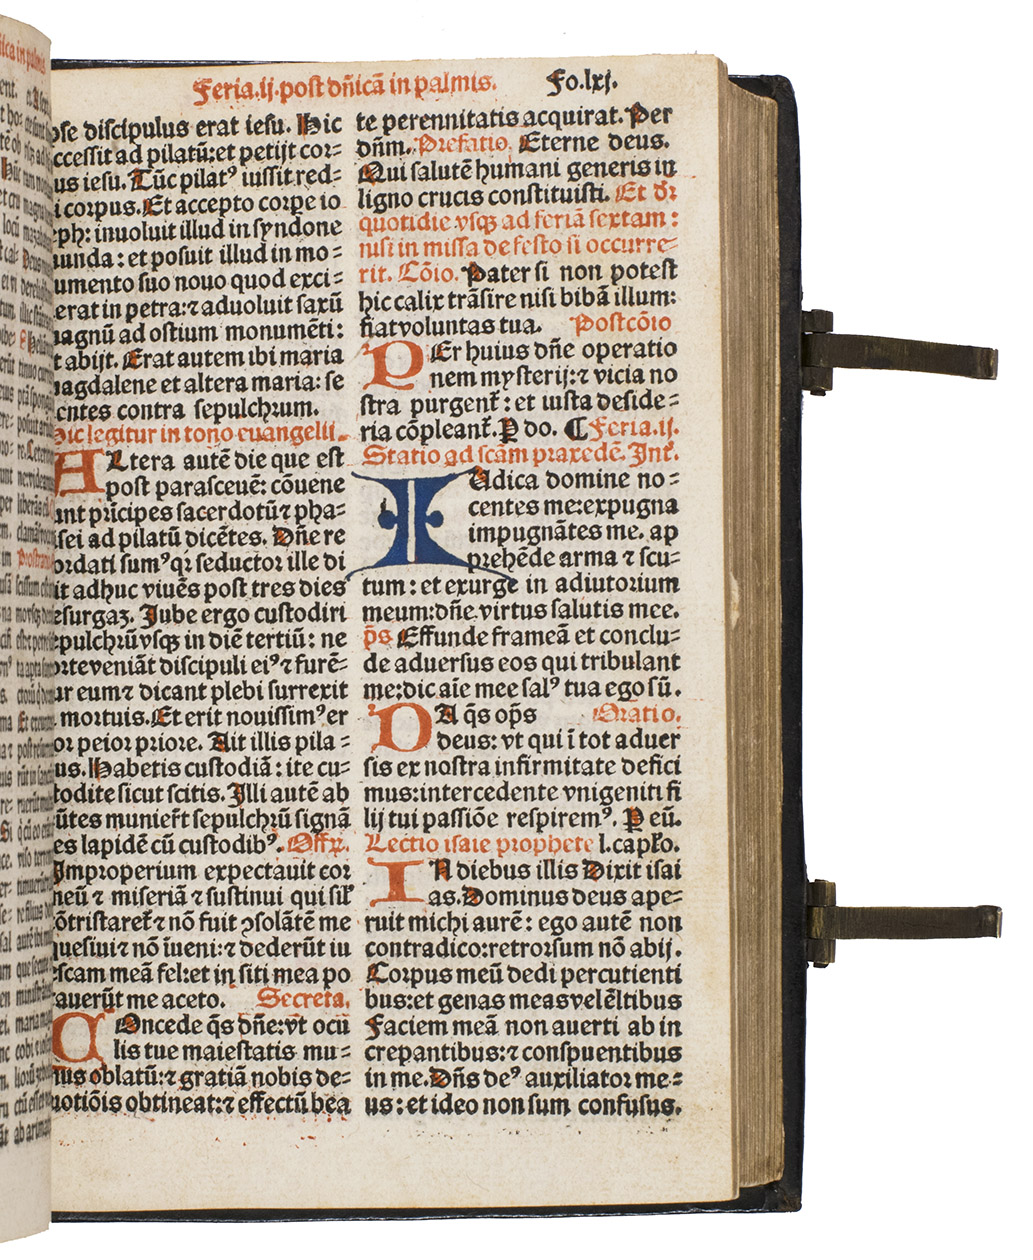 Feria.ij.post dñicã in palmis. Fo.lxj.
ipse discipulus erat iesu. Hic
accessit ad pilatũ:et petijt cor-
pus iesu. Tũc pilatꝰ iussit red-
di corpus. Et accepto corpe io
seph: inuoluit illud in syndone
munda: et posuit illud in mo-
numento suo nouo quod exci-
derat in petra:⁊ aduoluit saxũ
magnũ ad ostium monumẽti:
et abijt. Erat autem ibi maria
magdalene et altera maria: se
dentes contra sepulchꝛum.
Hic legitur in tono euangelii.
ALtera autẽ die que est
post parasceuẽ: cõuene
runt pñcipes sacerdotũ ⁊ pha-
risei ad pilatũ dicẽtes. Dñe re
cordati sumꝰ qꝛ seductor ille di
xit adhuc viuẽs post tres dies
resurgaꝫ. Jube ergo custodiri
sepulchꝛũ vsqꝫ in diẽ tertiũ: ne
forte veniãt discipuli eiꝰ ⁊ furẽ-
tur eum ⁊ dicant plebi surrexit
a mortuis. Et erit nouissimꝰ er
ror peior priore. Ait illis pila-
tus. Habetis custodiã: ite cu-
stodite sicut scitis. Illi autẽ ab
eũtes muniert̃ sepulchꝛũ signã
tes lapidẽ cũ custodibꝰ. Offꝝ.
Improperium expectauit cor
meũ ⁊ miseriã ⁊ sustinui qui sil̃
cõtristaret̃ ⁊ nõ fuit ↄsolãtẽ me
quesiui ⁊ nõ iueni:⁊ dederũt in
escam meã fel:et in siti mea po
tauerũt me aceto. Secreta.
COncede q̃s dñe:vt ocu
lis tue maiestatis mu-
nus oblatũ:⁊ gratiã nobis de-
uotiõis obtineat:⁊ effectũ bea
te perennitatis acquirat. Per
dñm. Prefatio. Eterne deus.
Qui salutẽ humani generis in
ligno crucis constituisti. Et dr̃
quotidie vsqꝫ ad feriã sextam:
nisi in missa de festo si occurre-
rit. Cõio. Pater si non potest
hic calix trãsire nisi bibã illum:
fiat voluntas tua. Postcõio
PEr huius dñe operatio
nem mysterij:⁊ vicia no
stra purgent̃: et iusta deside-
ria cõpleant̃. P do. ¶ Feria.ij.
Statio ad scãm praxedẽ. Int̃.
IUdica domine no-
centes me:expugna
impugnãtes me. ap
prehẽde arma ⁊ scu-
tum: et exurge in adiutorium
meum:dñe virtus salutis mee.
p̃s Effunde frameã et conclu-
de aduersus eos qui tribulant
me:dic aĩe mee salꝰ tua ego sũ.
DA q̃s op̃s Oratio.
deus: vt qui ĩ tot aduer
sis ex nostra infirmitate defici
mus:intercedente vnigeniti fi
lij tui passiõe respiremꝰ. P eũ.
Lectio isaie prophete l.cap̃ło.
IN diebus illis Dixit isai
as. Dominus deus ape-
ruit michi aurẽ: ego autẽ non
contradico:retroꝛsum nõ abij.
Corpus meũ dedi percutienti
bus:et genas meas velẽltibus
Faciem meã non auerti ab in
crepantibus:⁊ conspuentibus
in me. Dñs deꝰ auxiliatoꝛ me-
us: et ideo non sum confusus.